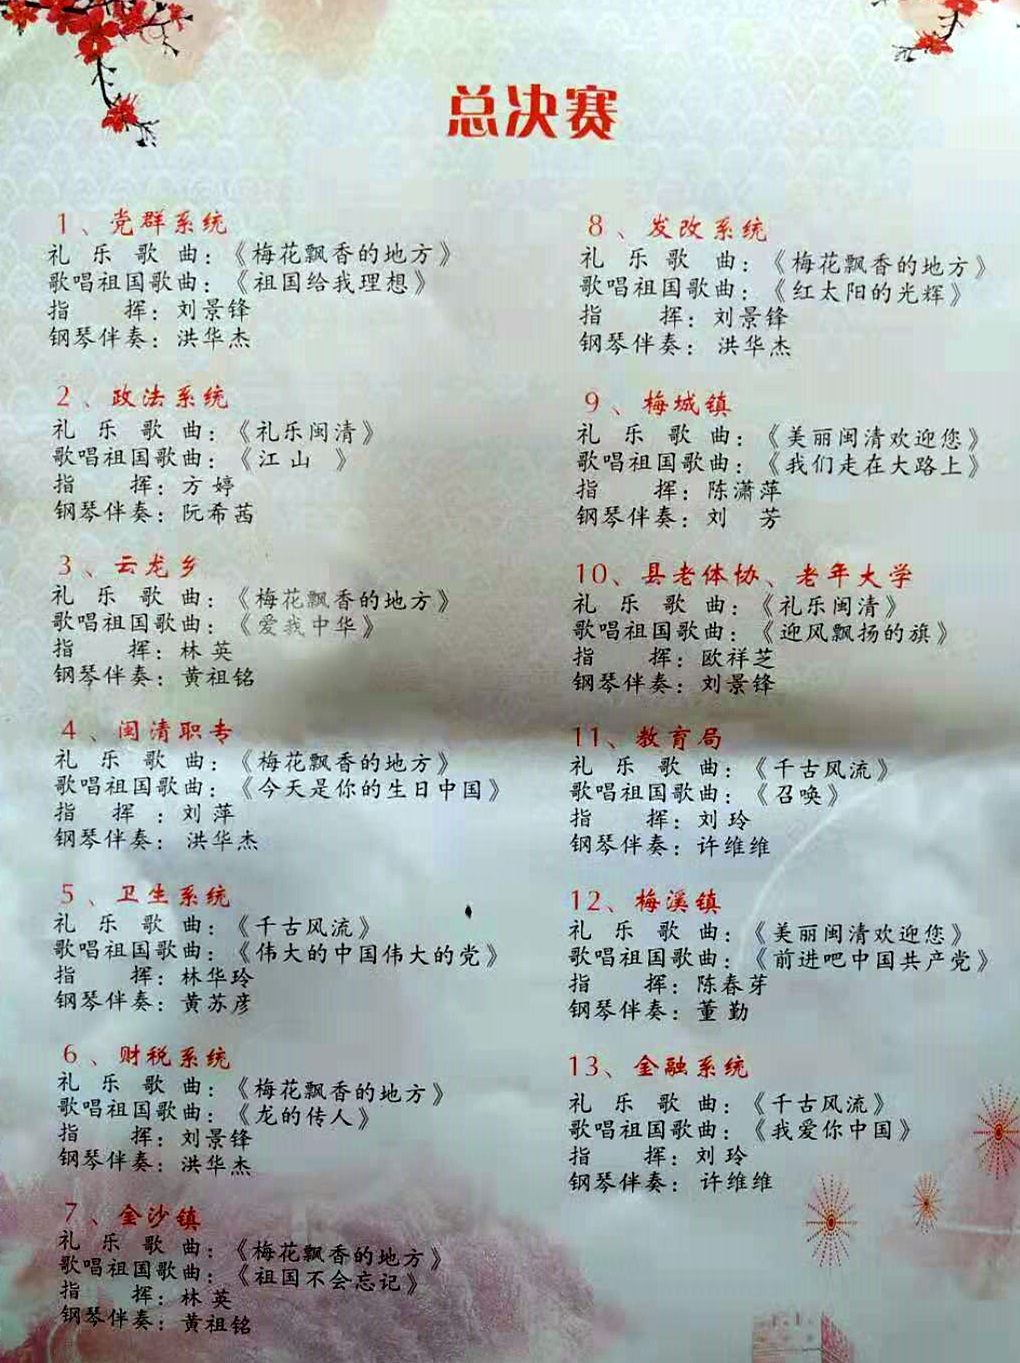 总决赛
1、党群系统
礼乐歌曲：《梅花飘香的地方》
歌唱祖国歌曲：《祖国给我理想》
指挥：刘景锋
钢琴伴奏：洪华杰
2、政法系统
礼乐歌曲：《礼乐闽清》
歌唱祖国歌曲：《江山》
指挥：方婷
钢琴伴奏：阮希茜
3、云龙乡
礼乐歌曲：《梅花飘香的地方》
歌唱祖国歌曲：《爱我中华》
指挥：林英
钢琴伴奏：黄祖铭
4、闽清职专
礼乐歌曲：《梅花飘香的地方》
歌唱祖国歌曲：《今天是你的生日中国》
指挥：刘萍
钢琴伴奏：洪华杰
5、卫生系统
礼乐歌曲：《千古风流》
歌唱祖国歌曲：《伟大的中国伟大的党》
指挥：林华玲
钢琴伴奏：黄苏彦
6、财税系统
礼乐歌曲：《梅花飘香的地方》
歌唱祖国歌曲：《龙的传人》
指挥：刘景锋
钢琴伴奏：洪华杰
7、金沙镇
礼乐歌曲：《梅花飘香的地方》
歌唱祖国歌曲：《祖国不会忘记》
指挥：林英
钢琴伴奏：黄祖铭
8、发改系统
礼乐歌曲：《梅花飘香的地方》
歌唱祖国歌曲：《红太阳的光辉》
指挥：刘景锋
钢琴伴奏：洪华杰
9、梅城镇
礼乐歌曲：《美丽闽清欢迎您》
歌唱祖国歌曲：《我们走在大路上》
指挥：陈潇萍
钢琴伴奏：刘芳
10、县老体协、老年大学
礼乐歌曲：《礼乐闽清》
歌唱祖国歌曲：《迎风飘扬的旗》
指挥：欧祥芝
钢琴伴奏：刘景锋
11、教育局
礼乐歌曲：《千古风流》
歌唱祖国歌曲：《召唤》
指挥：刘玲
钢琴伴奏：许维维
12、梅溪镇
礼乐歌曲：《美丽闽清欢迎您》
歌唱祖国歌曲：《前进吧中国共产党》
指挥：陈春芽
钢琴伴奏：董勤
13、金融系统
礼乐歌曲：《千古风流》
歌唱祖国歌曲：《我爱你中国》
指挥：刘玲
钢琴伴奏：许维维